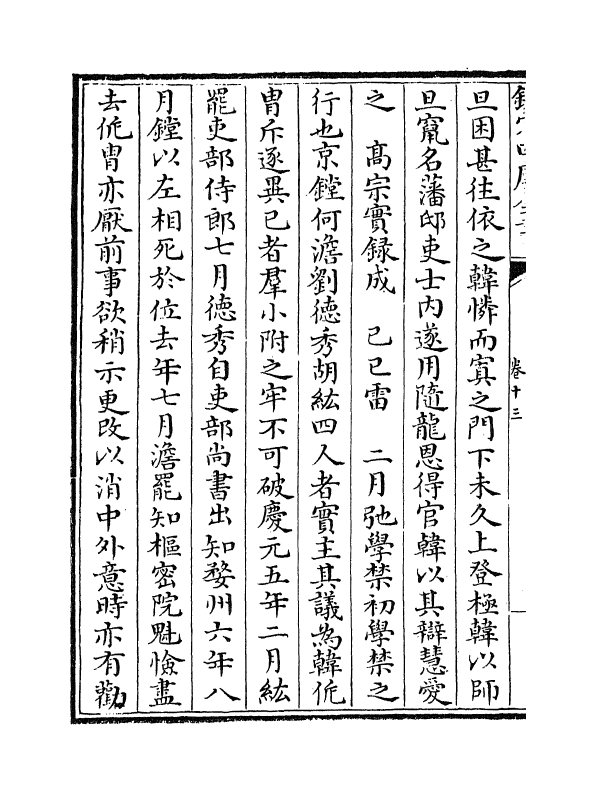 卷十三
旦困甚往依之韓憐而寘之門下未久上登極韓以師
旦竄名藩邸吏士内遂用隨龍恩得官韓以其辯慧愛
之　髙宗實録成　己巳雷　二月弛學禁初學禁之
行也京鏜何澹劉德秀胡紘四人者實主其議為韓侂
胄斥逐異已者羣小附之牢不可破慶元五年二月紘
罷吏部侍郎七月德秀自吏部尚書出知婺州六年八
月鏜以左相死於位去年七月澹罷知樞密院魁憸盡
去侂胄亦厭前事欲稍示更改以消中外意時亦有勸